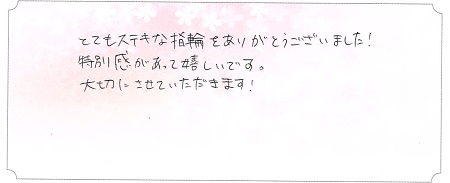 とてもステキな指輪をありがとうございました!
特別感があって嬉しいです。
大切にさせていただきます!